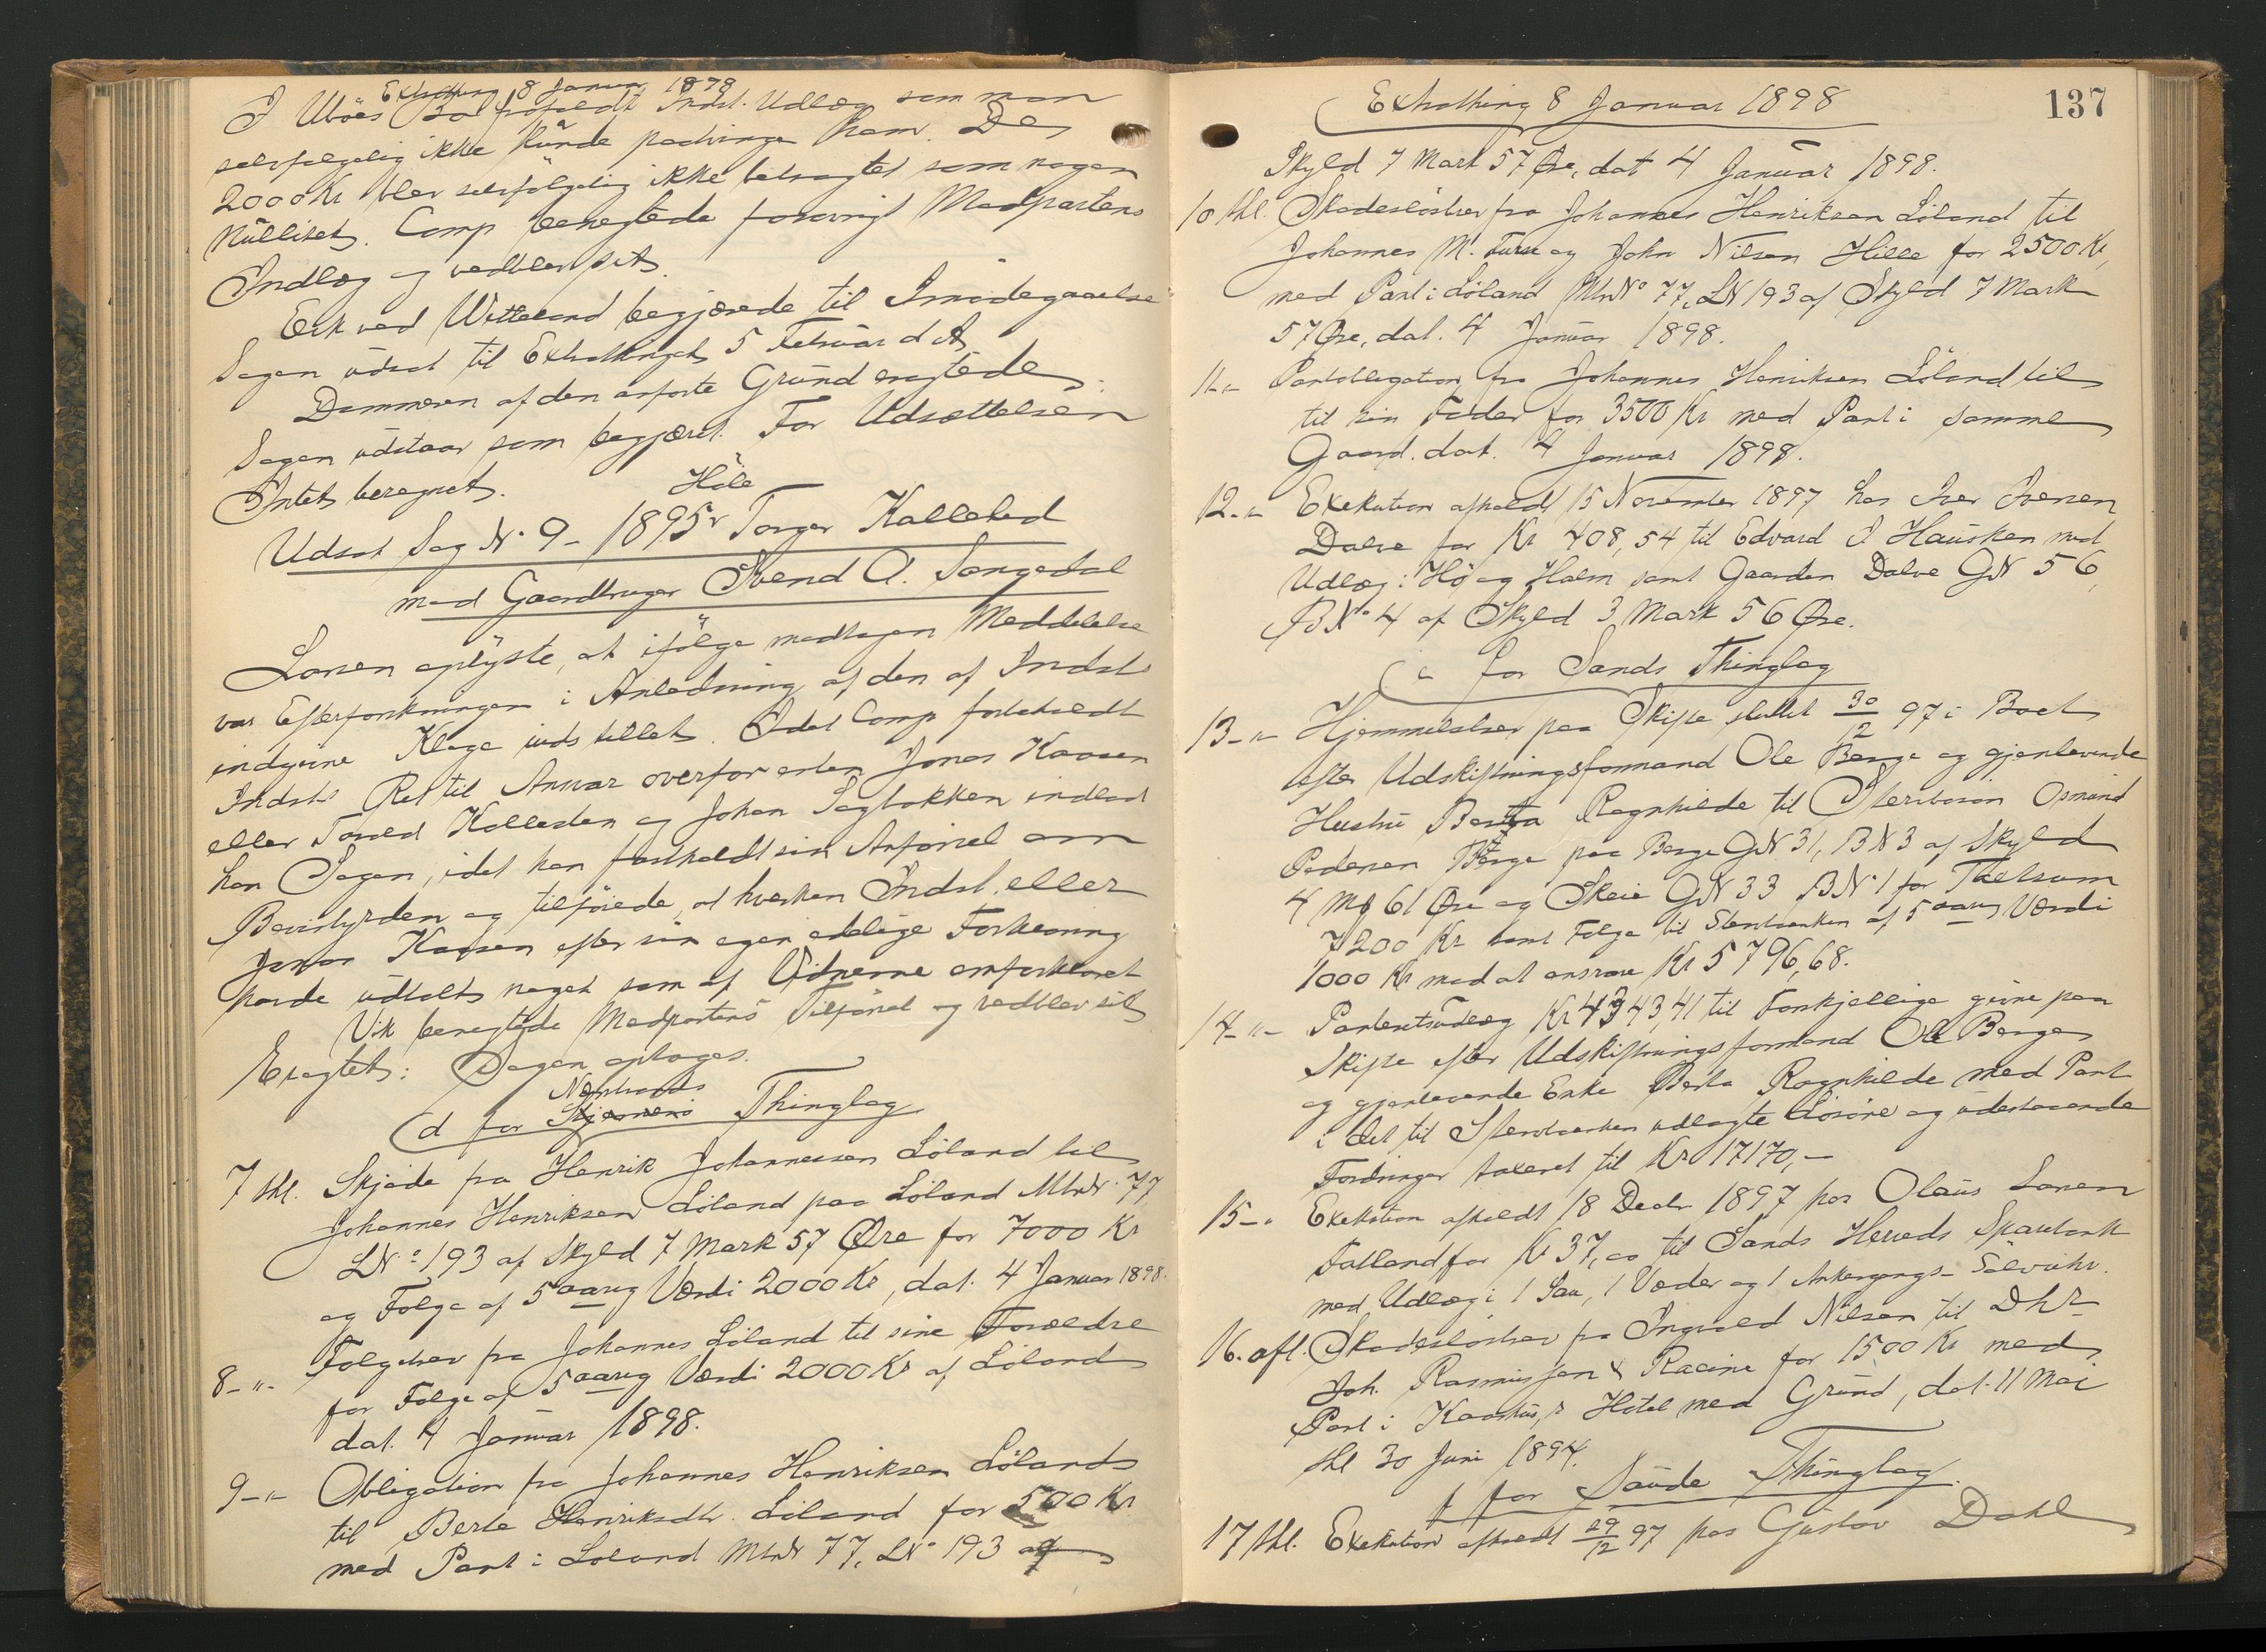 Extrathing 8 Januar 1898
I Uböes Bo forholdt Indst. Udlæg som man
selvfølgelig ikke kunde paatvinge ham. De
2000 Kr blev selvfølgelig ikke betragtet som nogen
Nullitet. Comp benegtede forøvrigt Modpartens
Indlæg og vedblev sit.
Eik ved Witteland begjærede til Imødegaaelse
Sagen udsat til Extrathinget 5 Februar d A
Dommeren af den anførte Grund eragtede:
Sagen udstaar som begjæret. For Udsættelsen
Intet beregnet.
Höle
Udsat Sag No 9 - 1895 Torger Kallelid
mod Gaardbruger Svend A. Sangedal
oplyste, at ifølge modtagen Meddelelse
var Efterforskningen i Anledning af den af Indst
indgivne Klage indstillet. Idet Comp forbeholdt
Indsts Ret til Ansvar overfor enten Jonas Kaasen
eller Kallesten og Johan Sagbakken indlod
han Sagen, idet han fastholdt sin Anførsel om
Bevisbyrden og tilføiede, at hverken Indst. eller
Jonas Kaasen efter sin egen edelige Forklaring
havde udtalt noget som af Vidnerne omforklaret
Vik benegtede Modpartens Tilførsel og vedblev sit
Eragtet: Sagen optages.
Nerstrands
d for Thinglag
7 thl. Skjøde fra Henrik Johannessen Löland til
Johannes Henriksen Löland paa Löland MtrN. 77,
LNo 193 af Skyld 7 Mark 57 Øre for 7000 Kr
og Folge af 5 aarig Værdi 2000 Kr, dat. 4 Januar 1898.
8 -"- Folgebrev fra Johannes Löland til sine Forældre
for Folge af 5 aarig Værdi 2000 Kr af Löland
dat. 4 Januar 1898.
9 -"- Obligation fra Johannes Henriksen Löland
til Berte Henriksdtr. Löland for 500 Kr
med Pant i Löland MtrN 77, LNo 193 af
Extrathing 8 Januar 1898
137
Skyld 7 Mark 57 Øre, dat 4 Januar 1898.
10 thl. Skadesløsbrev fra Johannes Henriksen Löland til
Johannes M. og John Nilsen Hille for 2500 Kr,
med Pant i Löland MtrNo 77, LN 193 af Skyld 7 Mark
57 Øre, dat. 4 Januar 1898.
11 -"- Pantobligation fra Johannes Henriksen Löland til
til sin Fader for 3500 Kr med Pant i samme
Gaard. dat. 4 Januar 1898.
12 -"- Exekution afholdt 15 November 1897 hos Iver Iversen
Dalve for Kr 408,54 til Edvard I Hausken med
Udlæg i Hø og Halm samt Gaarden Dalve GN 56,
BNo 4 af Skyld 3 Mark 56 Øre.
e for Sands Thinglag
13 -"- Hjemmelsbrev paa Skifte sluttet 30/12 97 i Boet
efter Udskiftningsformand Ole Berge og gjenlevende
Hustru Berta Ragnhilde til Osmund
Pedersen Berge paa Berge GN 31, BN 3 af Skyld
4 Mk 61 Øre og Skeie GN 33 BNo 1 for Tilsam
7200 Kr samt Folge til Stervenken af 5 aarig Værdi
1000 Kr mod at ansvare Kr 5796,68.
14 -"- Panteudlæg Kr 4343,41 til Forskjellige givne paa
Skifte efter Udskiftningsformand Ole Berge
og gjenlevende Enke Berta Ragnhilde med Pant
i det til udlagte Løsøre og udestaaende
Fordringer taxeret til Kr 17170,-
15 -"- Exekution afholdt 18 Decbr 1897 hos Olaus Larsen
Fatland for Kr 37,00 til Sands Herreds Sparebank
med Udlæg i 1 Sau, 1 Væder og 1 Ankergangs-Sølvuhr.
16. afl. Skadesløsbrev fra Ingvald Nilsen til DHr
Joh. Rasmussen & Racine for 1500 Kr med
Pant i Hotel med Grund, dat. 11 Mai
thl 30 Juni 1894.
f for Saude Thinglag.
17 thl. Exekution afholdt 29/12 97 hos Gustav Dahl